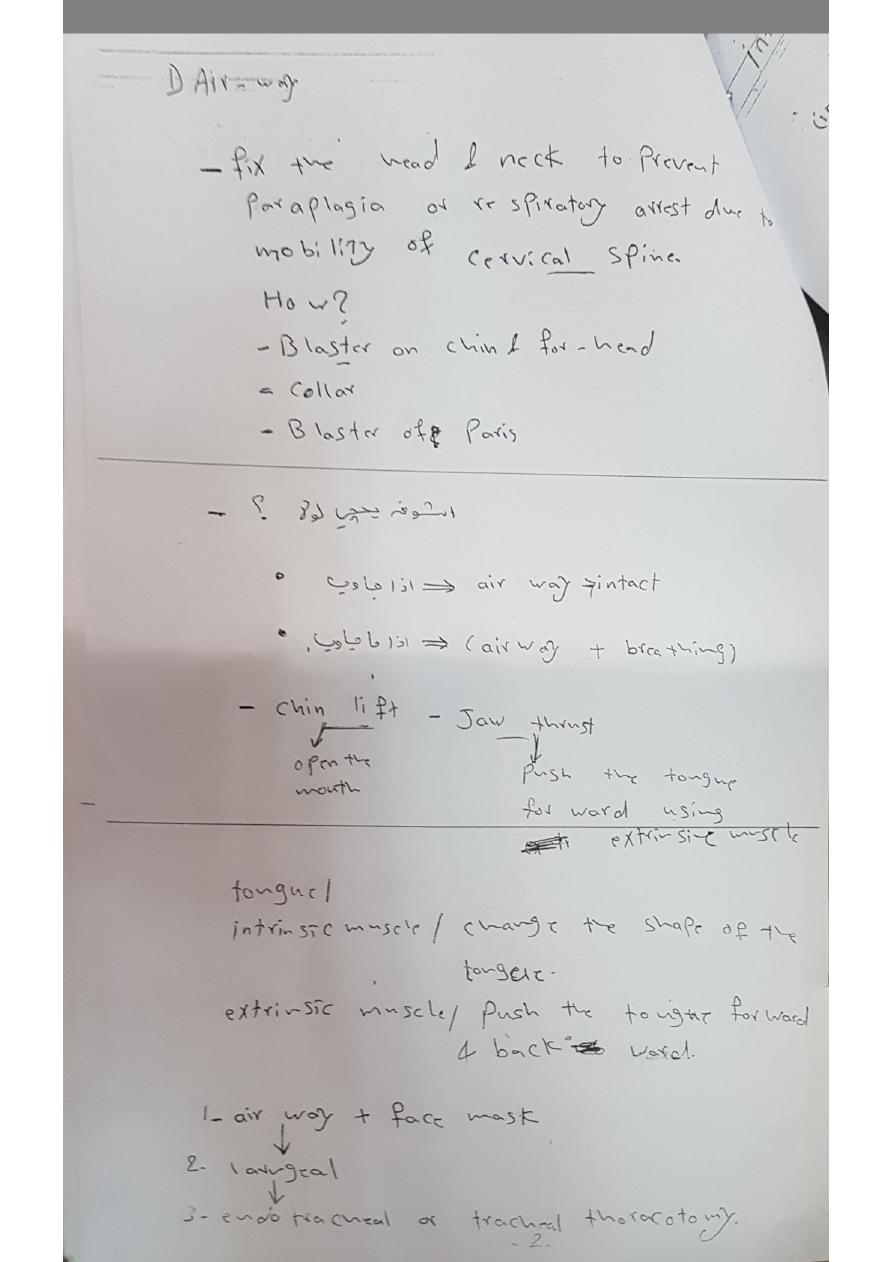 1) Air-way
- fix the head & neck to Prevent
Paraplagia or respiratory arrest due to
mobility of cervical spine.
How?
- Blaster on chin & for-head
- Collar
- Blaster of Paris
- اشوفه يحچي لو لا ؟
• اذا جاوب ⇒ air way intact
• اذا ما جاوب ⇒ (air way + breathing)
- Chin lift - Jaw thrust
open the
mouth
Push the tongue
for ward using
extrinsic muscle
tongue/
intrinsic muscle / change the shape of the
tongue.
extrinsic muscle/ Push the tongue forward
& back ward.
1- air way + face mask
2. laryngeal
3- endotracheal or tracheal thoracotomy.
-2.